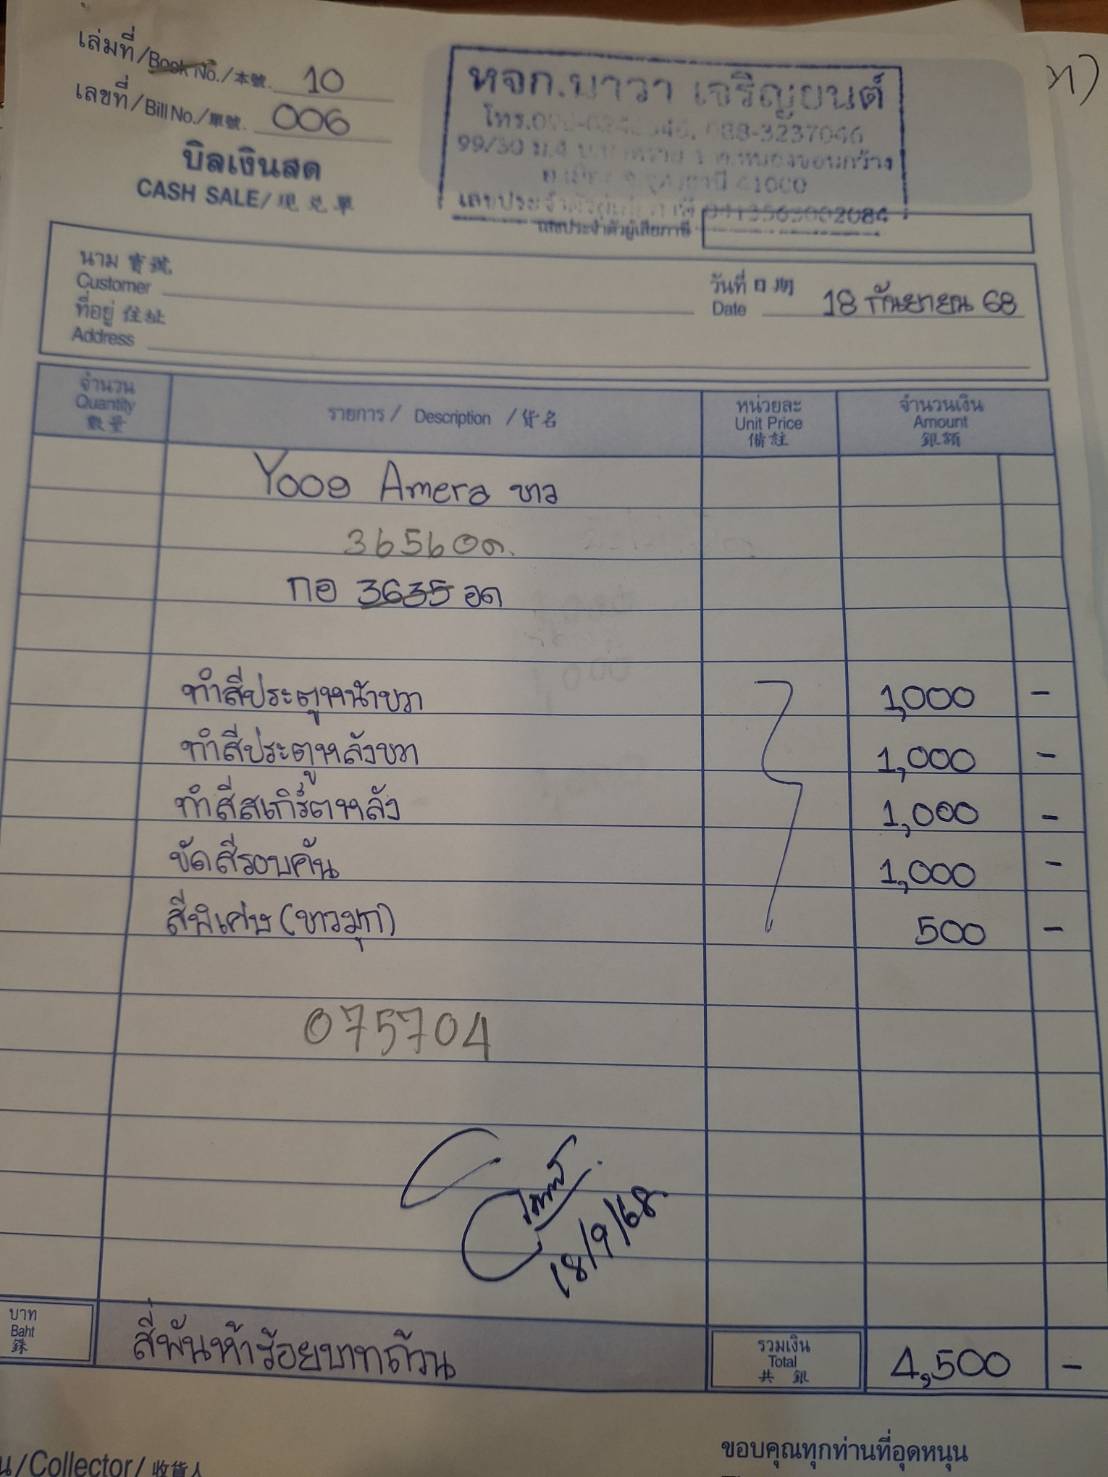 เล่มที่/Book No./本號. 10
เลขที่/Bill No./單號. 006
บิลเงินสด
CASH SALE/現兌單
หจก.นาวา เจริญยนต์
โทร. 088-3237046
99/30 ม.4
41000
เลขประจำตัวผู้เสียภาษี 0413563002084
เลขประจำตัวผู้เสียภาษี
นาม 寶號
Customer
ที่อยู่ 住址
Address
วันที่ 日期
Date 18 กันยายน 68
จำนวน
Quantity
數量
รายการ / Description / 貨名
หน่วยละ
Unit Price
備註
จำนวนเงิน
Amount
銀額
Yoog Amera ขาว
3656 อด.
กอ 3635 อด
ทำสีประตูหน้าขวา 1,000 -
ทำสีประตูหลังขวา 1,000 -
ทำสีสเกิร์ตหลัง 1,000 -
ขัดสีรอบคัน 1,000 -
สีพิเศษ (ขาวมุก) 500 -
075704
18/9/68
บาท
Baht
銖
สี่พันห้าร้อยบาทถ้วน
รวมเงิน
Total
共銀
4,500 -
/Collector/ 收貨人
ขอบคุณทุกท่านที่อุดหนุน